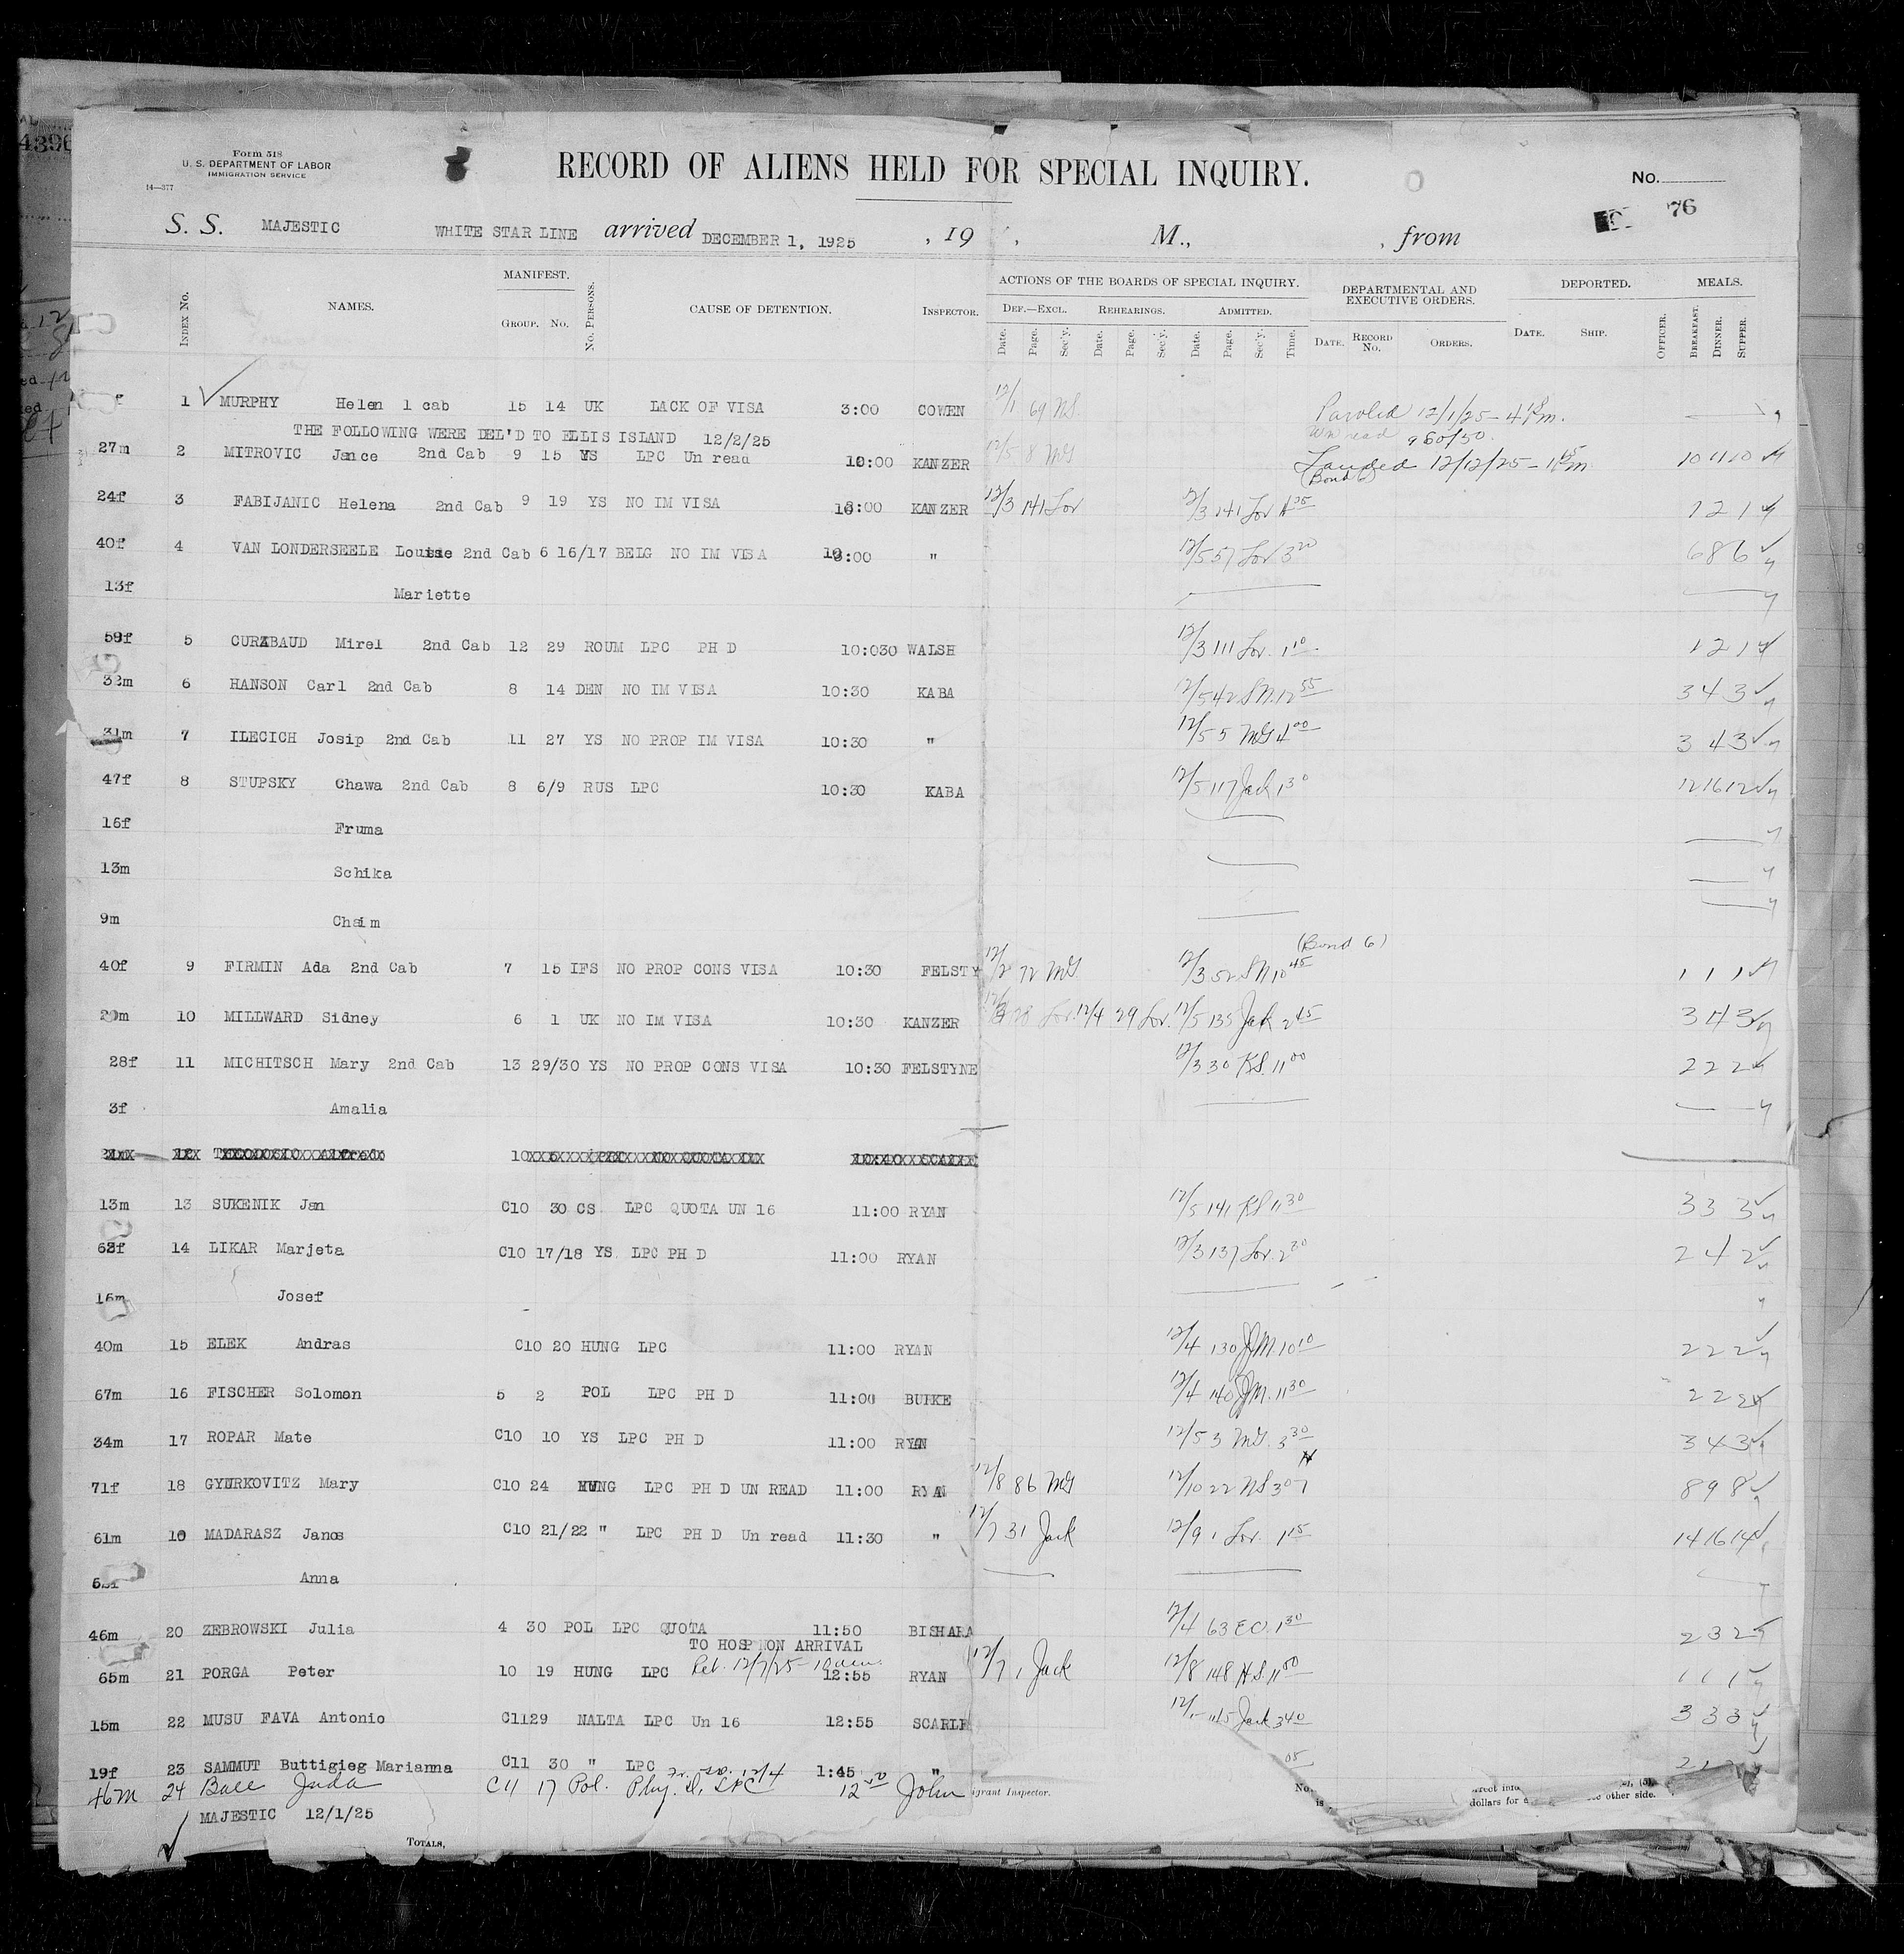 Form 518
U. S. DEPARTMENT OF LABOR
IMMIGRATION SERVICE
14—377
RECORD OF ALIENS HELD FOR SPECIAL INQUIRY.
No.
76
S. S. MAJESTIC WHITE STAR LINE arrived DECEMBER 1, 1925 , 19 , M., , from
INDEX No. NAMES. MANIFEST. GROUP. No. No. PERSONS. CAUSE OF DETENTION. INSPECTOR. ACTIONS OF THE BOARDS OF SPECIAL INQUIRY. DEF.—EXCL. REHEARINGS. ADMITTED. DEPARTMENTAL AND EXECUTIVE ORDERS. DEPORTED. MEALS.
Date. Page. Sec'y. Date. Page. Sec'y. Date. Page. Sec'y. Time. DATE. RECORD No. ORDERS. DATE. SHIP. OFFICER. BREAKFAST. DINNER. SUPPER.
f 1 MURPHY Helen 1 cab 15 14 UK LACK OF VISA 3:00 COWEN 12/1 69 NS Paroled 12/1/25 - 4 PM.
THE FOLLOWING WERE DEL'D TO ELLIS ISLAND 12/2/25
27m 2 MITROVIC Jance 2nd Cab 9 15 YS LPC Un read 10:00 KANZER 12/5 8 MG Landed 12/12/25 10 11 10
(Bond 6)
24f 3 FABIJANIC Helena 2nd Cab 9 19 YS NO IM VISA 10:00 KANZER 12/3 141 Lor 12/3 141 Lor 1 2 1
40f 4 VAN LONDERSEELE Louise 2nd Cab 6 16/17 BELG NO IM VISA 10:00 " 12/5 57 Lor 3 20 6 8 6
13f Mariette
59f 5 CURABAUD Mirel 2nd Cab 12 29 ROUM LPC PH D 10:030 WALSH 12/3 111 Lor. 1 10 1 2 1
32m 6 HANSON Carl 2nd Cab 8 14 DEN NO IM VISA 10:30 KABA 12/5 42 SN 12 55 3 4 3
31m 7 ILECICH Josip 2nd Cab 11 27 YS NO PROP IM VISA 10:30 " 12/5 5 MG 4 00 3 4 3
47f 8 STUPSKY Chawa 2nd Cab 8 6/9 RUS LPC 10:30 KABA 12/5 117 Jack 1 30 12 16 12
16f Fruma
13m Schika
9m Chaim
(Bond 6)
40f 9 FIRMIN Ada 2nd Cab 7 15 IFS NO PROP CONS VISA 10:30 FELSTY 12/2 72 MG 12/3 52 SN 10 45 1 1 1
20m 10 MILLWARD Sidney 6 1 UK NO IM VISA 10:30 KANZER Lor. 12/4 29 Lor. 12/5 135 Jack 2 45 3 4 3
28f 11 MICHITSCH Mary 2nd Cab 13 29/30 YS NO PROP CONS VISA 10:30 FELSTYNE 12/3 30 KS. 11 00 2 2 2
3f Amalia
13m 13 SUKENIK Jan C10 30 CS LPC QUOTA UN 16 11:00 RYAN 12/5 141 KS 11 30 3 3 3
63f 14 LIKAR Marjeta C10 17/18 YS LPC PH D 11:00 RYAN 12/3 137 Lor. 2 30 2 4 2
16m Josef
40m 15 ELEK Andras C10 20 HUNG LPC 11:00 RYAN 12/4 130 JM. 10 10 2 2 2
67m 16 FISCHER Solomon 5 2 POL LPC PH D 11:00 BURKE 12/4 140 JM. 11 30 2 2 2
34m 17 ROPAR Mate C10 10 YS LPC PH D 11:00 RYAN 12/5 3 MG. 3 30 3 4 3
71f 18 GYURKOVITZ Mary C10 24 HUNG LPC PH D UN READ 11:00 RYAN 12/8 86 MG 12/10 22 NS 8 9 8
61m 19 MADARASZ Janos C10 21/22 " LPC PH D Un read 11:30 " 12/7 31 Jack 12/9 1 Lor. 1 15 14 16 14
Anna
46m 20 ZEBROWSKI Julia 4 30 POL LPC QUOTA 11:50 BISHARA 12/4 63 EO. 1 30 2 3 2
TO HOSP ON ARRIVAL
Ret. 12/7/25 - 10 am.
65m 21 PORGA Peter 10 19 HUNG LPC 12:55 RYAN 12/7 1 Jack 12/8 148 HS. 11 00 1 1 1
15m 22 MUSU FAVA Antonio C11 29 NALTA LPC Un 16 12:55 SCARLE Jack 3 40 3 3 3
19f 23 SAMMUT Buttigieg Marianna C11 30 " LPC 12/4 1:45 " 05
46m 24 Juda C11 17 Pol. Phy. D, LPC 12 John
grant Inspector.
dollars for
other side.
MAJESTIC 12/1/25
TOTALS,